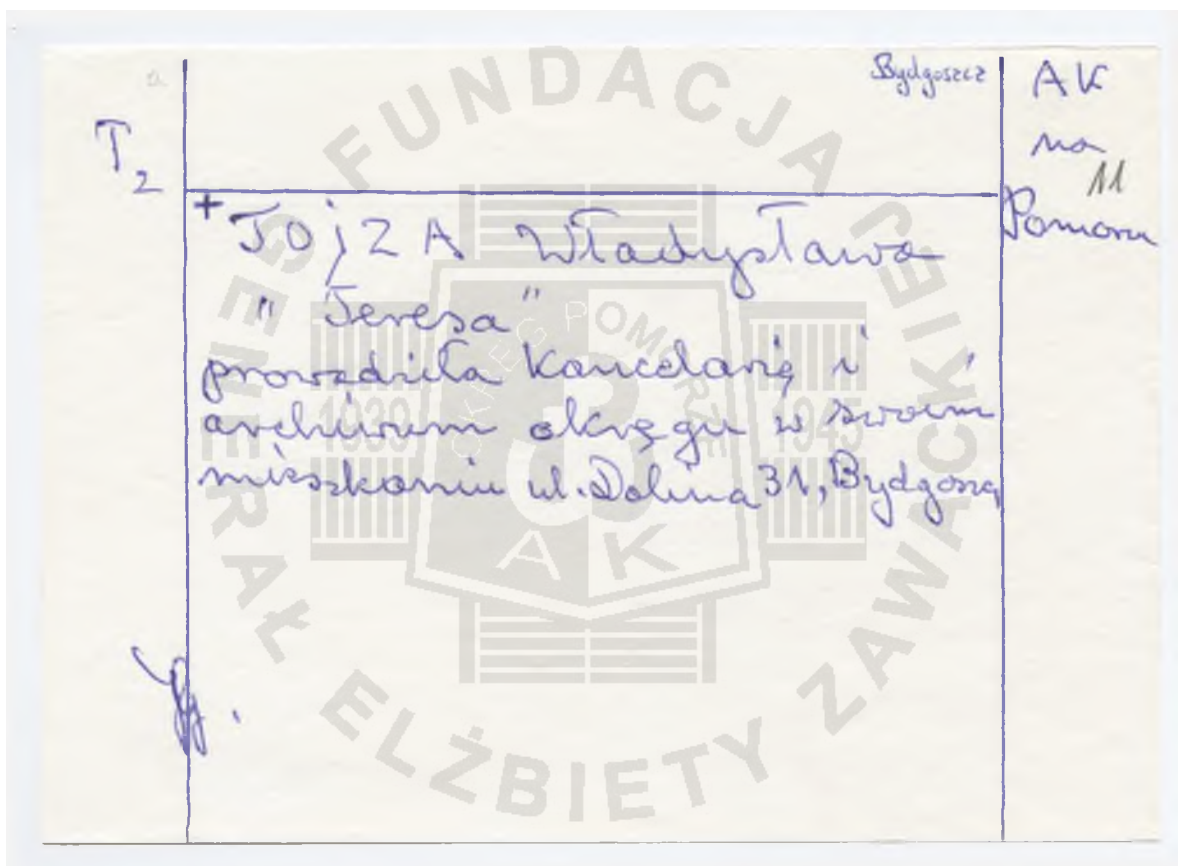 Bydgoszcz
AK
na
11
Pomorzu
T2
+ TOJZA Władysława
"Teresa"
prowadziła kancelarię i
archiwum okręgu w swoim
mieszkaniu ul. Dolina 31, Bydgoszcz
FUNDACJA
GENERAŁ ELŻBIETY ZAWACKIEJ
OKRĘG POMORZE
1939
1945
AK